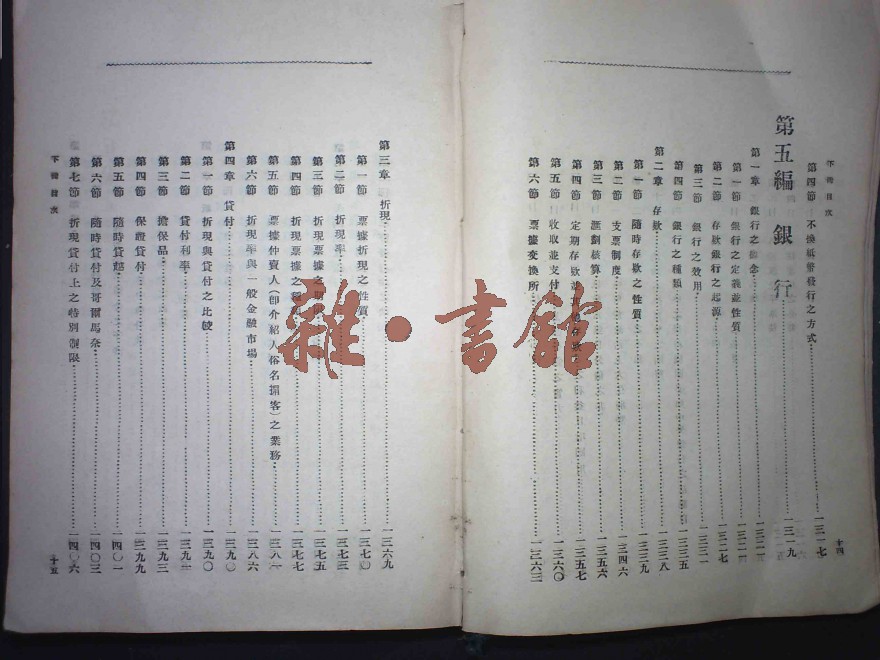 下冊目次
第四節 不換紙幣發行之方式 一三一七
第五編 銀行 一三一九
第一章 銀行之 念
第一節 銀行之定義並性質
第二節 存款銀行之起源 一三二七
第三節 銀行之效用 一三三一
第四節 銀行之種類 一三三五
第二章 存款 一三三八
第一節 隨時存款之性質 一三三九
第二節 支票制度 一三四六
第三節 劃核算 一三五六
第四節 定期存款 存款 一三五七
第五節 收取並支付 一三六〇
第六節 票據交換所 一三六三
十四
第三章 折現 一三六九
第一節 票據折現之性質 一三七〇
第二節 折現率 一三七三
第三節 折現票據之 一三七五
第四節 折現票據之種 一三七七
第五節 票據仲賣人(即介紹人俗名掮客)之業務
第六節 折現率與一般金融市場 一三八六
第四章 貸付 一三九〇
第一節 折現與貸付之比較 一三九〇
第二節 貸付利率
第三節 擔保品 一三九三
第四節 保證貸付 一三九九
第五節 隨時貸 一四〇一
第六節 隨時貸付及哥爾馬奈 一四〇三
第七節 折現貸付上之特別制限 一四〇六
下冊目次
十五
雜·書館